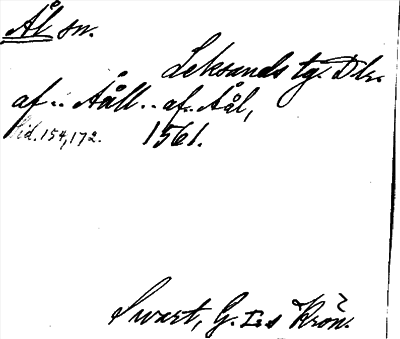 Ål sn.
Leksands tg. Dlr.
af.. Aåll.. af.. Aål,
Sid. 154, 172. 1561.
Swart, G. I:s Krön.